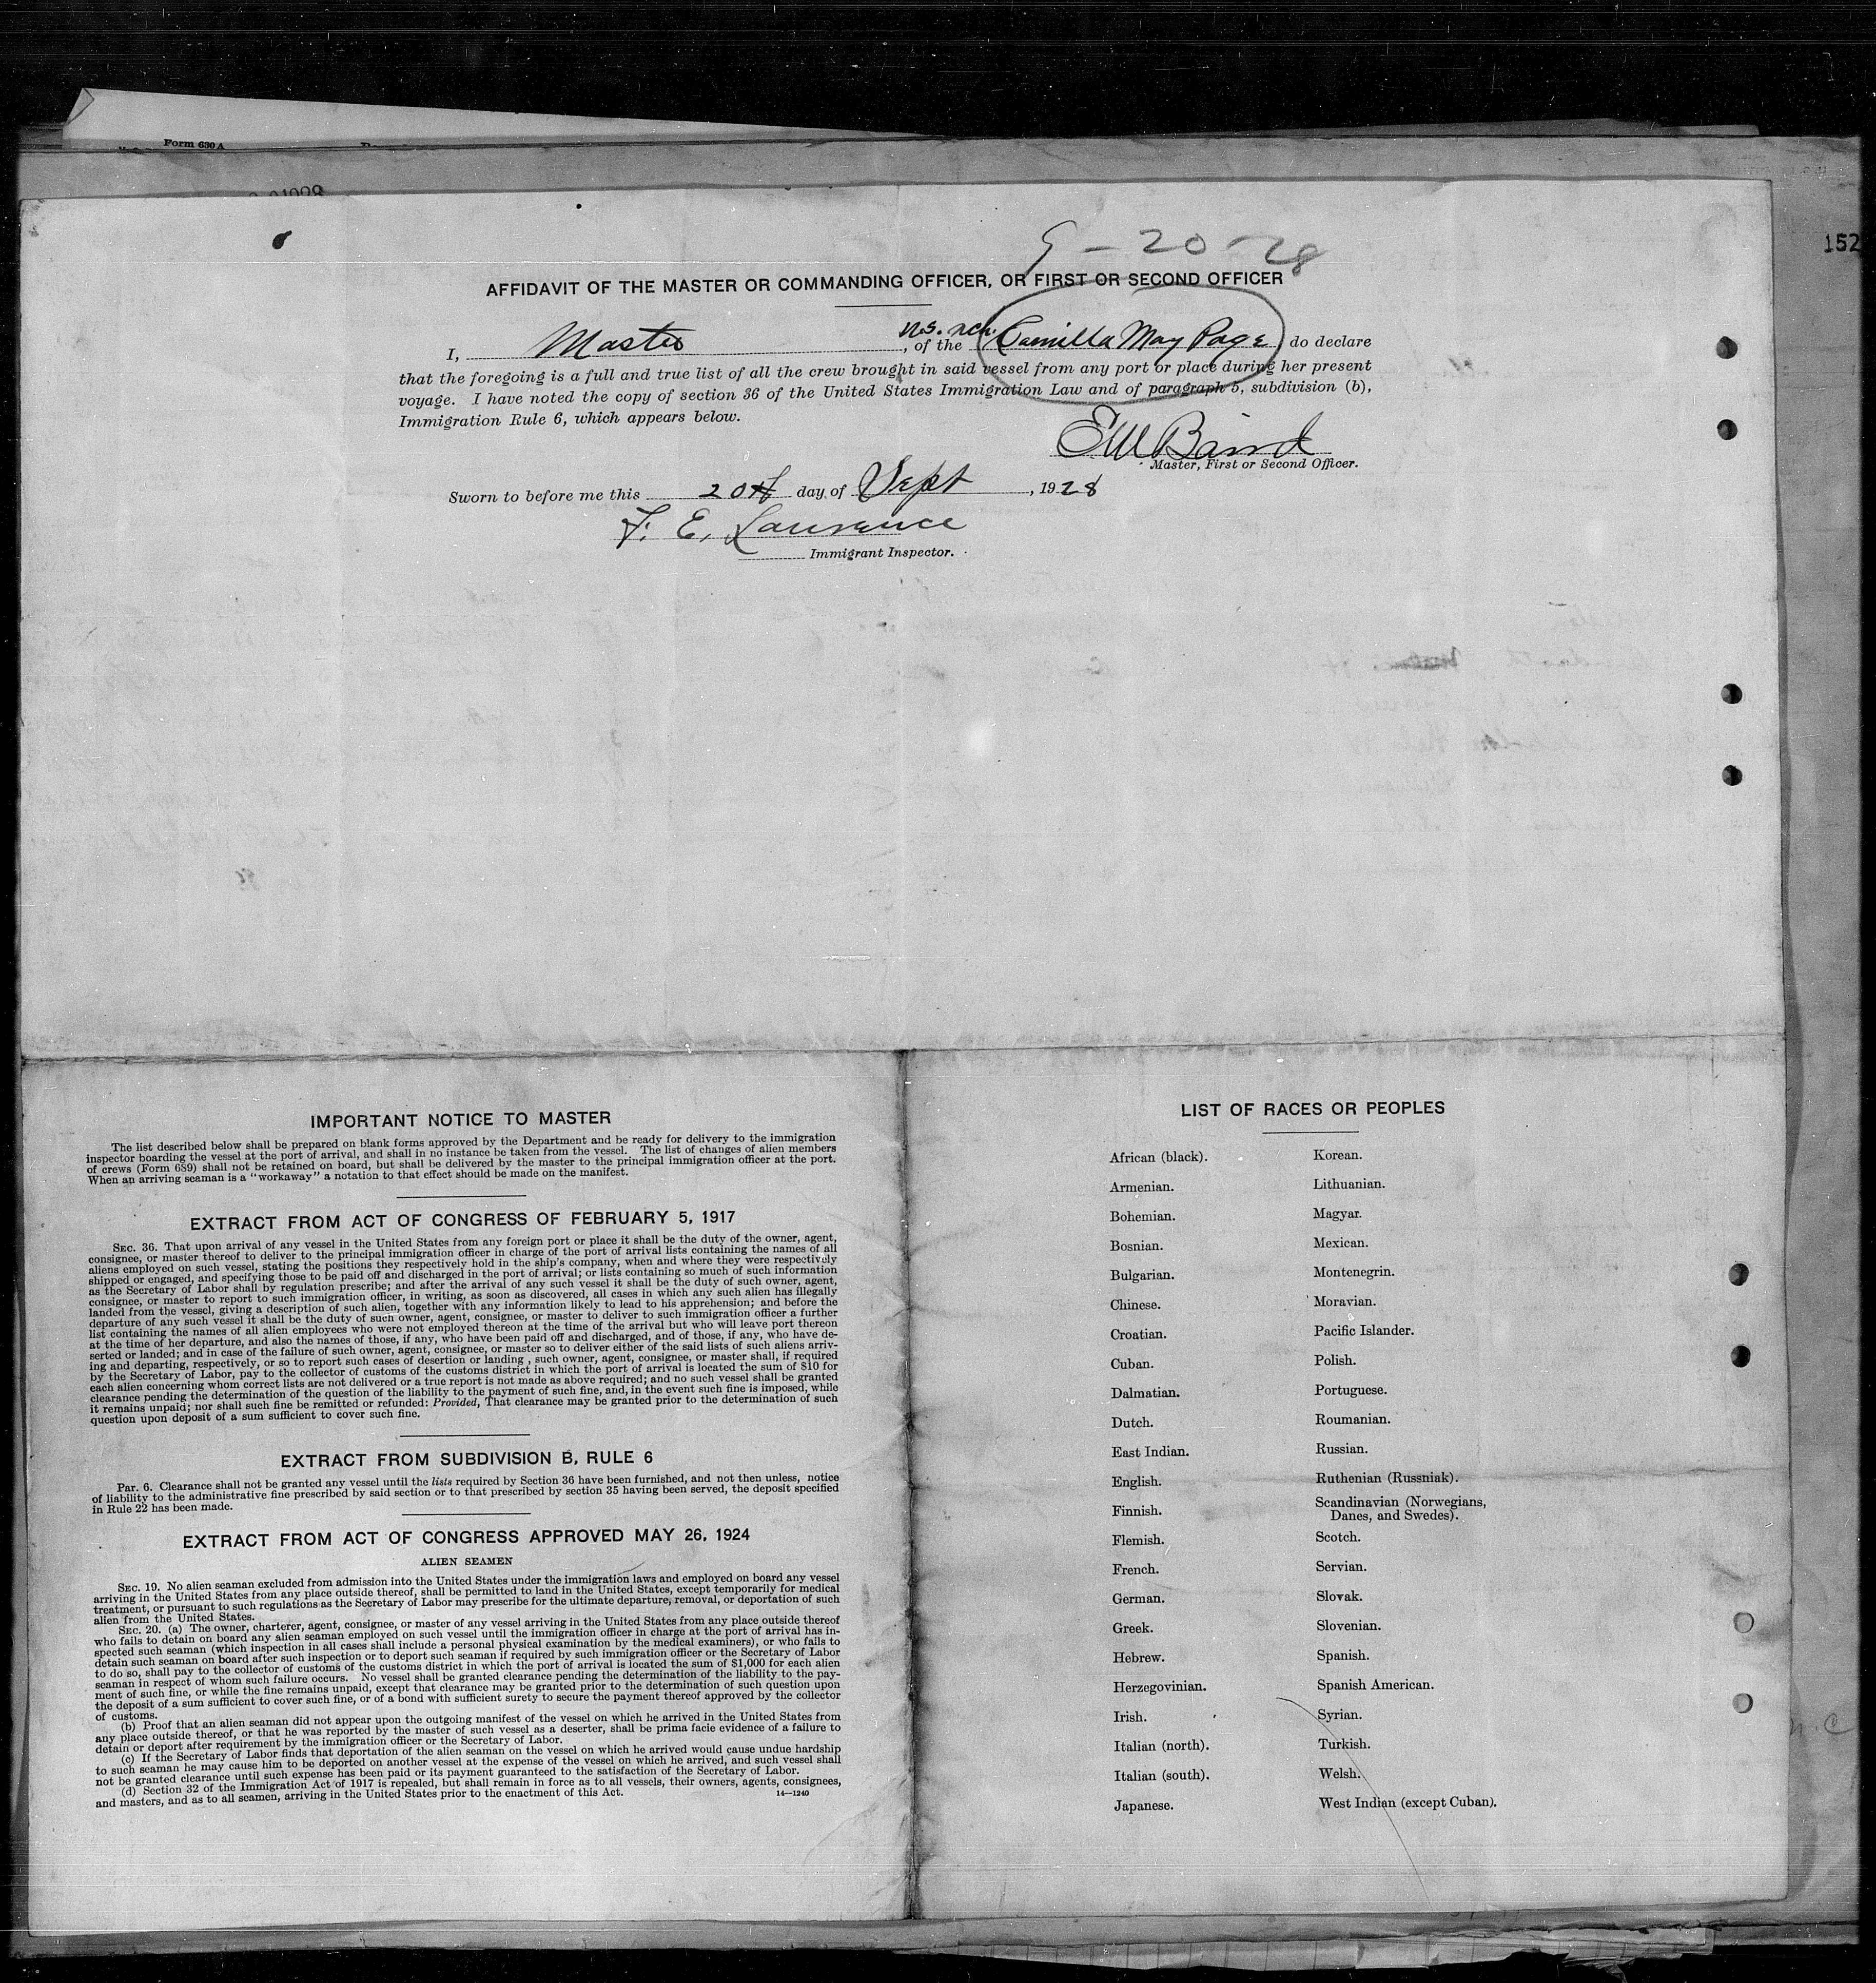 Form 630 A
152
9-20-28
AFFIDAVIT OF THE MASTER OR COMMANDING OFFICER, OR FIRST OR SECOND OFFICER
I, Master, of the Camilla May Page do declare
that the foregoing is a full and true list of all the crew brought in said vessel from any port or place during her present
voyage. I have noted the copy of section 36 of the United States Immigration Law and of paragraph 5, subdivision (b),
Immigration Rule 6, which appears below.
EW Baird
Master, First or Second Officer.
Sworn to before me this 20th day of Sept, 1928
F. E. Lawrence
Immigrant Inspector.
IMPORTANT NOTICE TO MASTER
The list described below shall be prepared on blank forms approved by the Department and be ready for delivery to the immigration
inspector boarding the vessel at the port of arrival, and shall in no instance be taken from the vessel. The list of changes of alien members
of crews (Form 689) shall not be retained on board, but shall be delivered by the master to the principal immigration officer at the port.
When an arriving seaman is a "workaway" a notation to that effect should be made on the manifest.
EXTRACT FROM ACT OF CONGRESS OF FEBRUARY 5, 1917
SEC. 36. That upon arrival of any vessel in the United States from any foreign port or place it shall be the duty of the owner, agent,
consignee, or master thereof to deliver to the principal immigration officer in charge of the port of arrival lists containing the names of all
aliens employed on such vessel, stating the positions they respectively hold in the ship's company, when and where they were respectively
shipped or engaged, and specifying those to be paid off and discharged in the port of arrival; or lists containing so much of such information
as the Secretary of Labor shall by regulation prescribe; and after the arrival of any such vessel it shall be the duty of such owner, agent,
consignee, or master to report to such immigration officer, in writing, as soon as discovered, all cases in which any such alien has illegally
landed from the vessel, giving a description of such alien, together with any information likely to lead to his apprehension; and before the
departure of any such vessel it shall be the duty of such owner, agent, consignee, or master to deliver to such immigration officer a further
list containing the names of all alien employees who were not employed thereon at the time of the arrival but who will leave port thereon
at the time of her departure, and also the names of those, if any, who have been paid off and discharged, and of those, if any, who have de-
serted or landed; and in case of the failure of such owner, agent, consignee, or master so to deliver either of the said lists of such aliens arriv-
ing and departing, respectively, or so to report such cases of desertion or landing , such owner, agent, consignee, or master shall, if required
by the Secretary of Labor, pay to the collector of customs of the customs district in which the port of arrival is located the sum of $10 for
each alien concerning whom correct lists are not delivered or a true report is not made as above required; and no such vessel shall be granted
clearance pending the determination of the question of the liability to the payment of such fine, and, in the event such fine is imposed, while
it remains unpaid; nor shall such fine be remitted or refunded: Provided, That clearance may be granted prior to the determination of such
question upon deposit of a sum sufficient to cover such fine.
EXTRACT FROM SUBDIVISION B, RULE 6
Par. 6. Clearance shall not be granted any vessel until the lists required by Section 36 have been furnished, and not then unless, notice
of liability to the administrative fine prescribed by said section or to that prescribed by section 35 having been served, the deposit specified
in Rule 22 has been made.
EXTRACT FROM ACT OF CONGRESS APPROVED MAY 26, 1924
ALIEN SEAMEN
SEC. 19. No alien seaman excluded from admission into the United States under the immigration laws and employed on board any vessel
arriving in the United States from any place outside thereof, shall be permitted to land in the United States, except temporarily for medical
treatment, or pursuant to such regulations as the Secretary of Labor may prescribe for the ultimate departure, removal, or deportation of such
alien from the United States.
SEC. 20. (a) The owner, charterer, agent, consignee, or master of any vessel arriving in the United States from any place outside thereof
who fails to detain on board any alien seaman employed on such vessel until the immigration officer in charge at the port of arrival has in-
spected such seaman (which inspection in all cases shall include a personal physical examination by the medical examiners), or who fails to
detain such seaman on board after such inspection or to deport such seaman if required by such immigration officer or the Secretary of Labor
to do so, shall pay to the collector of customs of the customs district in which the port of arrival is located the sum of $1,000 for each alien
seaman in respect of whom such failure occurs. No vessel shall be granted clearance pending the determination of the liability to the pay-
ment of such fine, or while the fine remains unpaid, except that clearance may be granted prior to the determination of such question upon
the deposit of a sum sufficient to cover such fine, or of a bond with sufficient surety to secure the payment thereof approved by the collector
of customs.
(b) Proof that an alien seaman did not appear upon the outgoing manifest of the vessel on which he arrived in the United States from
any place outside thereof, or that he was reported by the master of such vessel as a deserter, shall be prima facie evidence of a failure to
detain or deport after requirement by the immigration officer or the Secretary of Labor.
(c) If the Secretary of Labor finds that deportation of the alien seaman on the vessel on which he arrived would cause undue hardship
to such seaman he may cause him to be deported on another vessel at the expense of the vessel on which he arrived, and such vessel shall
not be granted clearance until such expense has been paid or its payment guaranteed to the satisfaction of the Secretary of Labor.
(d) Section 32 of the Immigration Act of 1917 is repealed, but shall remain in force as to all vessels, their owners, agents, consignees,
and masters, and as to all seamen, arriving in the United States prior to the enactment of this Act.
14—1240
LIST OF RACES OR PEOPLES
African (black).
Armenian.
Bohemian.
Bosnian.
Bulgarian.
Chinese.
Croatian.
Cuban.
Dalmatian.
Dutch.
East Indian.
English.
Finnish.
Flemish.
French.
German.
Greek.
Hebrew.
Herzegovinian.
Irish.
Italian (north).
Italian (south).
Japanese.
Korean.
Lithuanian.
Magyar.
Mexican.
Montenegrin.
Moravian.
Pacific Islander.
Polish.
Portuguese.
Roumanian.
Russian.
Ruthenian (Russniak).
Scandinavian (Norwegians,
Danes, and Swedes).
Scotch.
Servian.
Slovak.
Slovenian.
Spanish.
Spanish American.
Syrian.
Turkish.
Welsh.
West Indian (except Cuban).